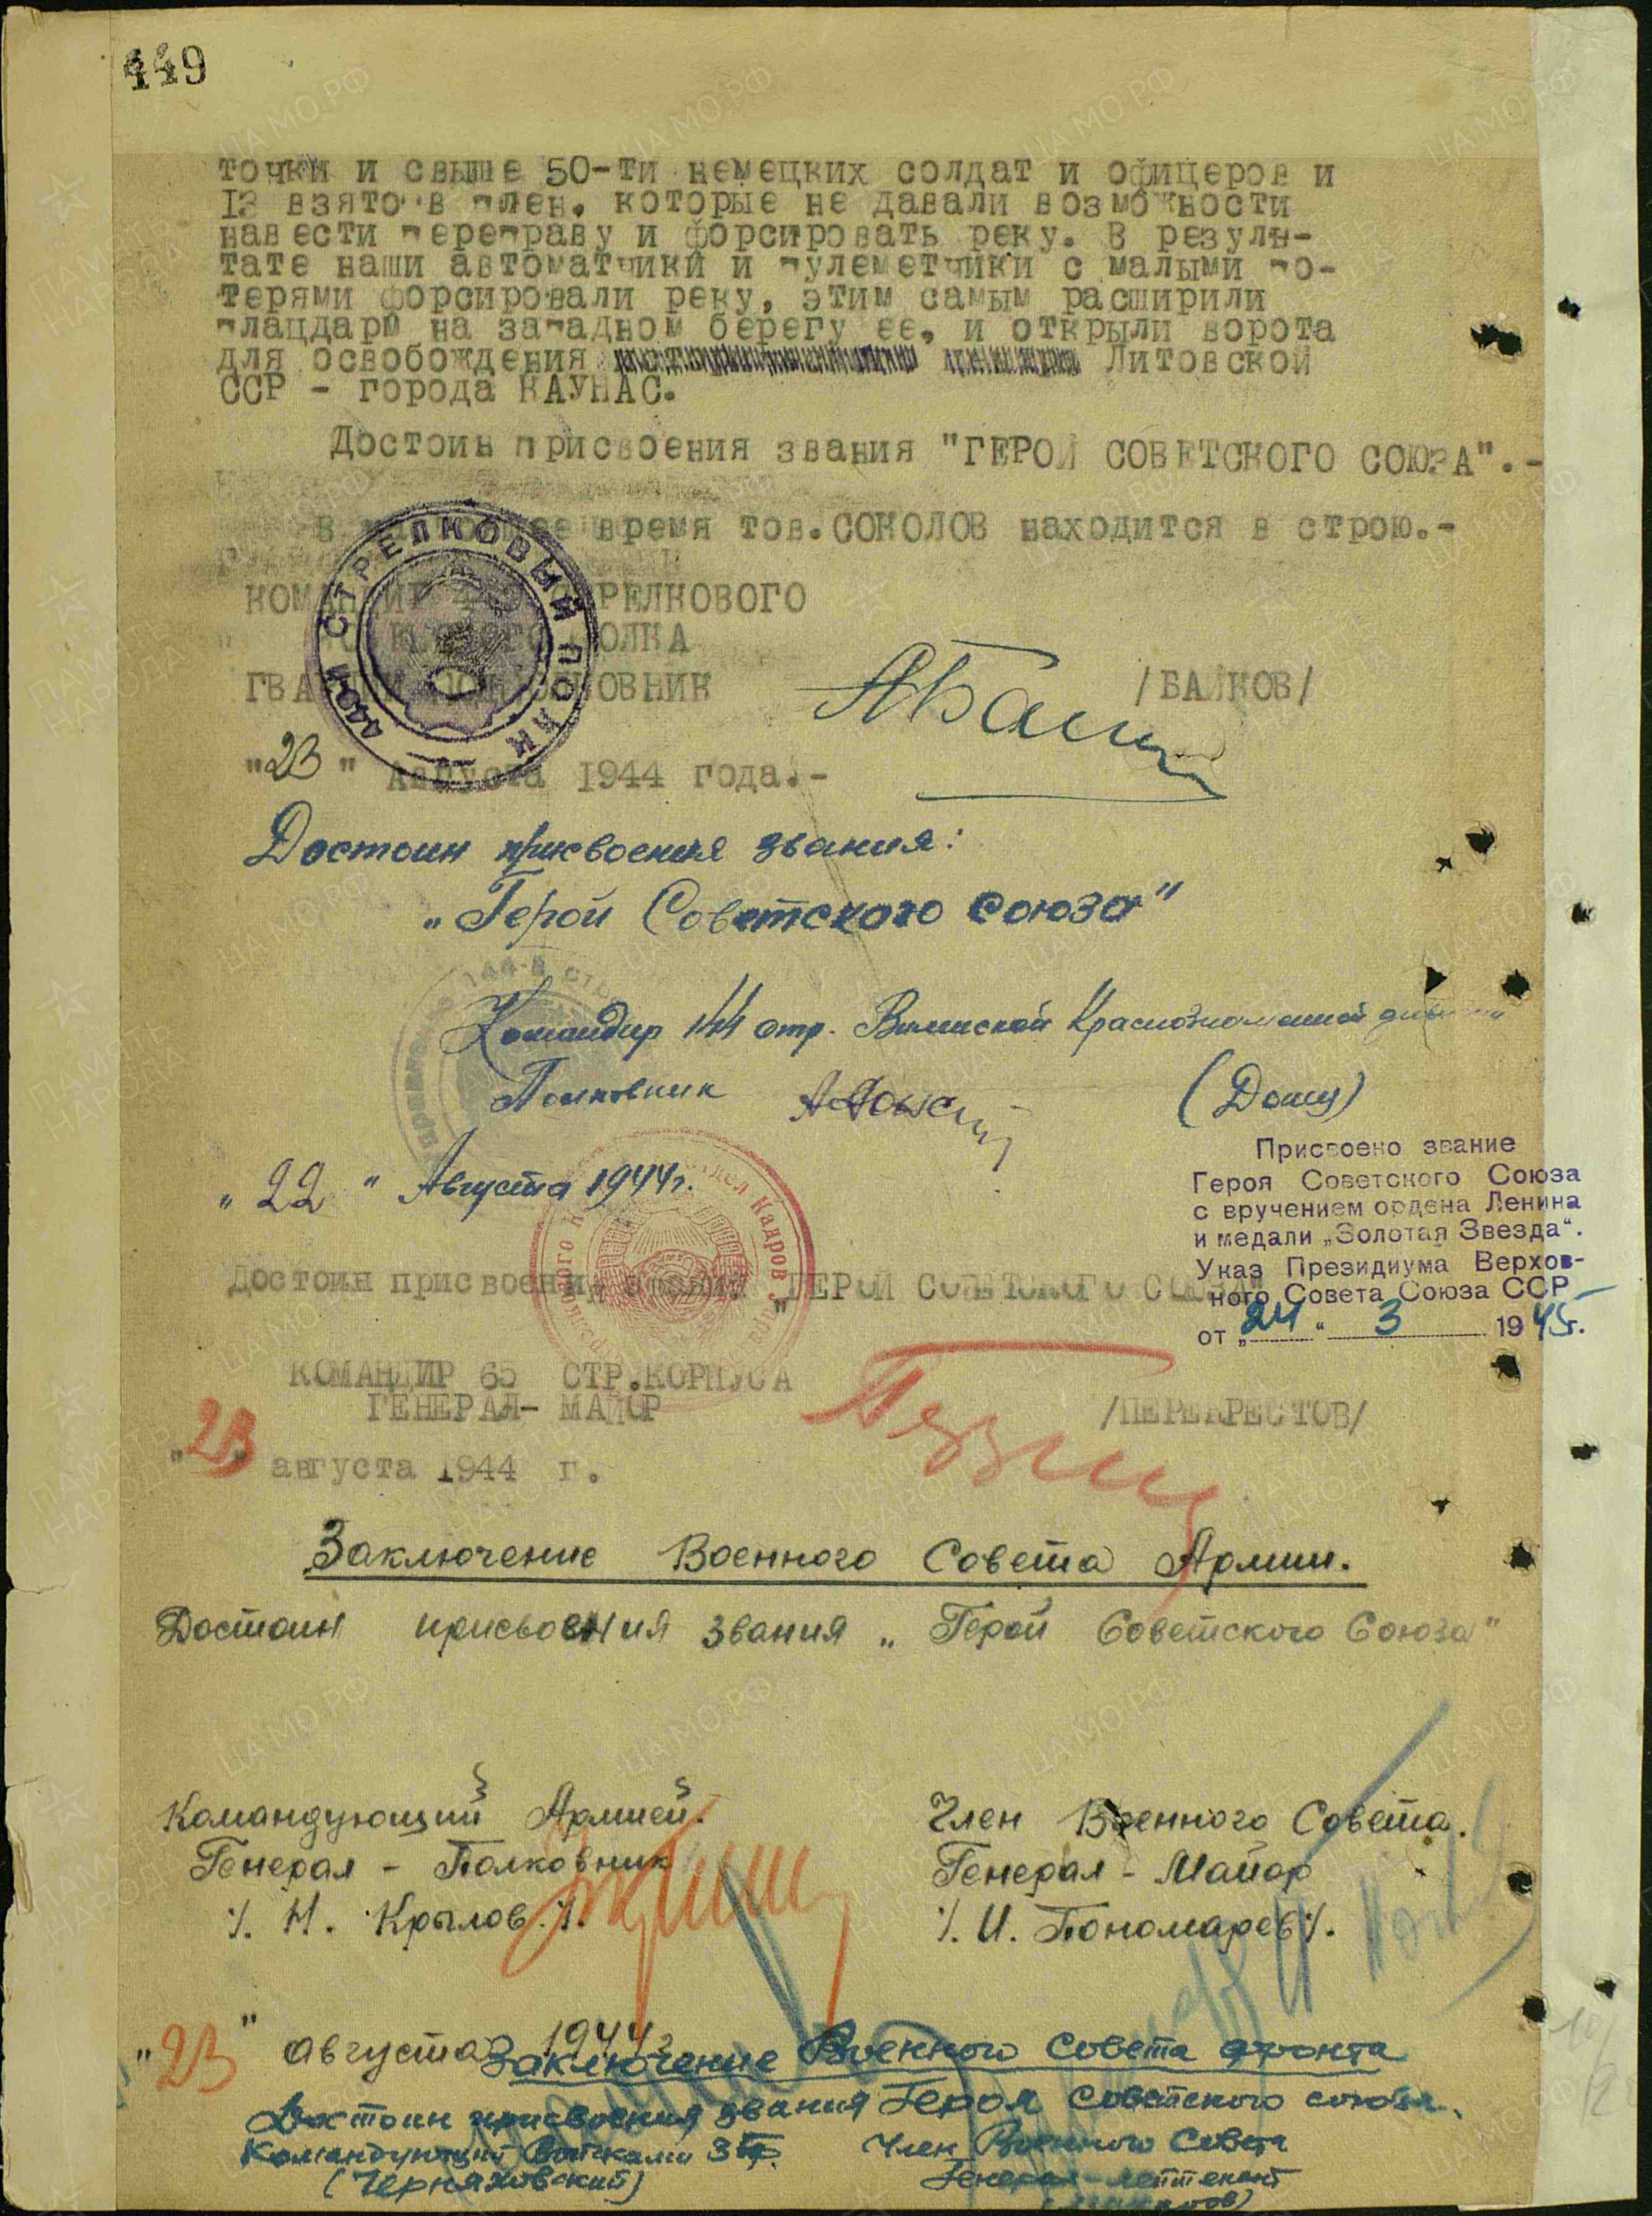 449
точки и свыше 50-ти немецких солдат и офицеров и
13 взято в плен, которые не давали возможности
навести переправу и форсировать реку. В резуль-
тате наши автоматчики и пулеметчики с малыми по-
терями форсировали реку, этим самым расширили
плацдарм на западном берегу ее, и открыли ворота
для освобождения Литовской
ССР - города КАУНАС.
Достоин присвоения звания "ГЕРОЙ СОВЕТСКОГО СОЮЗА".-
В настоящее время тов.СОКОЛОВ находится в строю.-
КОМАНДИР СТРЕЛКОВОГО
ПОЛКА
ГВАРДИИ ПОДПОЛКОВНИК /БАЙКОВ/
СТРЕЛКОВЫЙ ПОЛК
"23" Августа 1944 года.-
Достоин присвоения звания:
"Герой Советского Союза"
Командир 144 стр. Виленской Краснознаменной дивизии
Полковник (Донец)
"22" Августа 1944 г.
Отдел Кадров
Присвоено звание
Героя Советского Союза
с вручением ордена Ленина
и медали „Золотая Звезда“.
Указ Президиума Верхов-
ного Совета Союза ССР
от „24“ 3 1945г.
Достоин присвоения звания "ГЕРОЙ СОВЕТСКОГО СОЮЗА"
КОМАНДИР 65 СТР.КОРПУСА
ГЕНЕРАЛ- МАЙОР /ПЕРЕКРЕСТОВ/
"23" августа 1944 г.
Заключение Военного Совета Армии.
Достоин присвоения звания „Герой Советского Союза"
Командующий Армией. Член Военного Совета.
Генерал - Полковник Генерал - Майор
/. Н. Крылов./. /. И. Пономарев/.
"23" августа 1944 г.
Заключение Военного Совета фронта
Достоин присвоения звания Героя Советского союза.
Командующий Войсками 3 БФ. Член Военного Совета
(Черняховский) Генерал-лейтенант